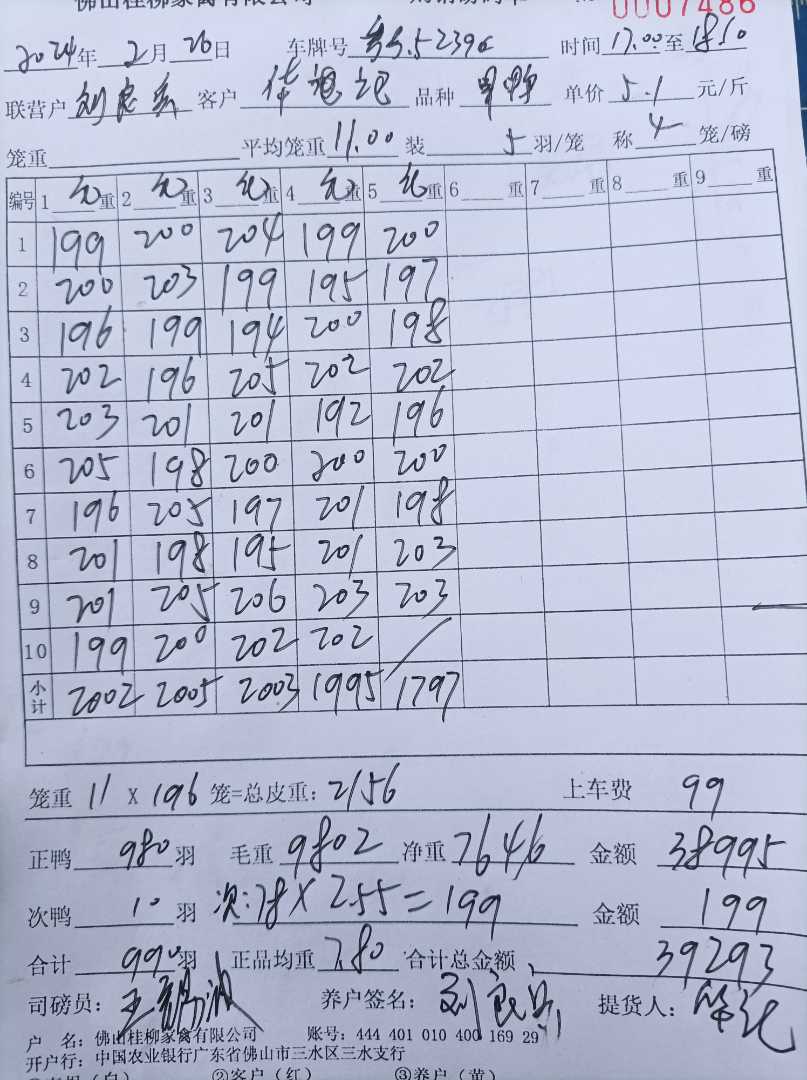 佛山桂柳家禽有限公司 0007486
2024年 2月 26日 车牌号 52396 时间 17.00 至 18.10
联营户 刘良兵 客户 华记 品种 单价 5.1 元/斤
笼重 平均笼重 11.00 装 5 羽/笼 称 4 笼/磅
编号 1 重 2 重 3 重 4 重 5 重 6 重 7 重 8 重 9 重
1 199 200 204 199 200
2 200 203 199 195 197
3 196 199 194 200 198
4 202 196 205 202 202
5 203 201 201 192 196
6 205 198 200 200 200
7 196 205 197 201 198
8 201 198 195 201 203
9 201 205 206 203 203
10 199 200 202 202 /
小计 2002 2005 2003 1995 1797
笼重 11 X 196 笼=总皮重: 2156 上车费 99
正鸭 980 羽 毛重 9802 净重 7646 金额 38995
次鸭 10 羽 次:78 X 2.55 = 199 金额 199
合计 990 羽 正品均重 7.80 合计总金额 39293
司磅员: 养户签名: 刘良兵 提货人: 华记
户 名: 佛山桂柳家禽有限公司 账号: 444 401 010 400 169 29
开户行: 中国农业银行广东省佛山市三水区三水支行
(白) ②客户（红） ③养户（黄）